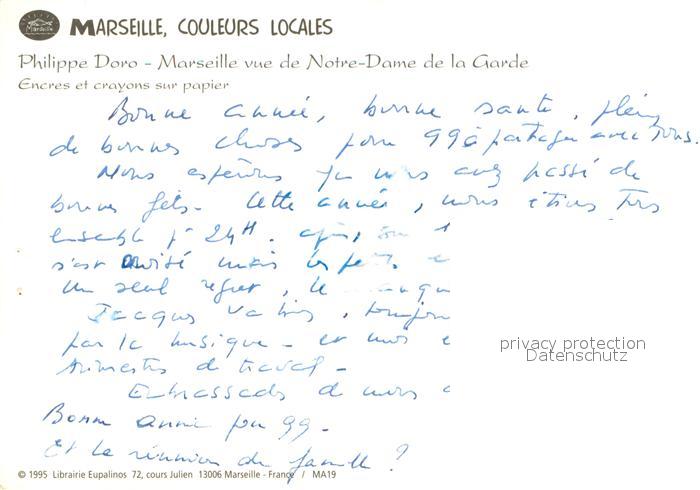 MARSEILLE, COULEURS LOCALES
Philippe Doro - Marseille vue de Notre-Dame de la Garde
Encres et crayons sur papier
Bonne année, bonne santé, plein
de bonnes choses pour 99 à partager avec tous.
Nous espérons que vous avez passé de
bonnes fêtes. Cette année, nous étions tous
ensemble pr 24H. après,
s'est mais les
Un seul regret, le
Jacques va bien, toujours
par la musique - et nous
de travail -
Embrassades de nous
Bonne année pour 99.
Et la réunion de famille ?
privacy protection
Datenschutz
© 1995 Librairie Eupalinos 72, cours Julien 13006 Marseille - France / MA19